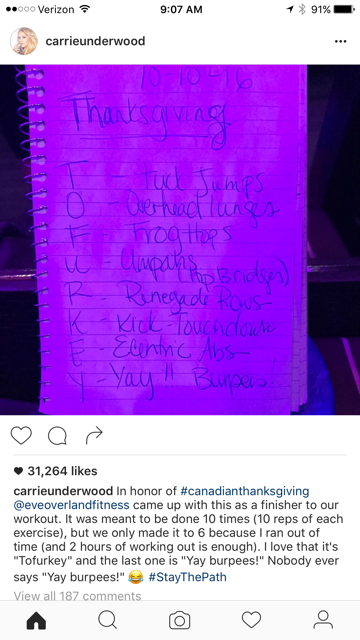 Verizon 9:07 AM 91%
carrieunderwood
10-10-16
Thanksgiving
T - Tuck Jumps
O - Overhead lunges
F - Frog Hops
U - (hip Bridges)
R - Renegade Rows
K - Kick-Touchdowns
E - Ecentric Abs
Y - Yay!! Burpees!
31,264 likes
carrieunderwood In honor of #canadianthanksgiving
@eveoverlandfitness came up with this as a finisher to our
workout. It was meant to be done 10 times (10 reps of each
exercise), but we only made it to 6 because I ran out of
time (and 2 hours of working out is enough). I love that it's
"Tofurkey" and the last one is "Yay burpees!" Nobody ever
says "Yay burpees!" 😂 #StayThePath
View all 187 comments